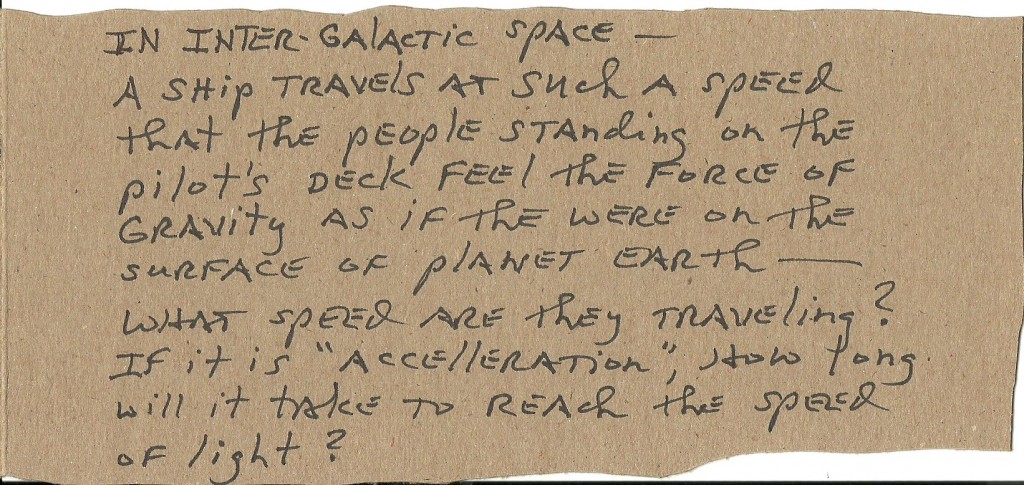 IN INTER-GALACTIC SPACE —
A SHIP TRAVELS AT SUCH A SPEED
THAT THE PEOPLE STANDING ON THE
PILOT'S DECK FEEL THE FORCE OF
GRAVITY AS IF THE WERE ON THE
SURFACE OF PLANET EARTH ——
WHAT SPEED ARE THEY TRAVELING?
IF IT IS "ACCELLERATION", HOW LONG
WILL IT TAKE TO REACH THE SPEED
OF LIGHT?